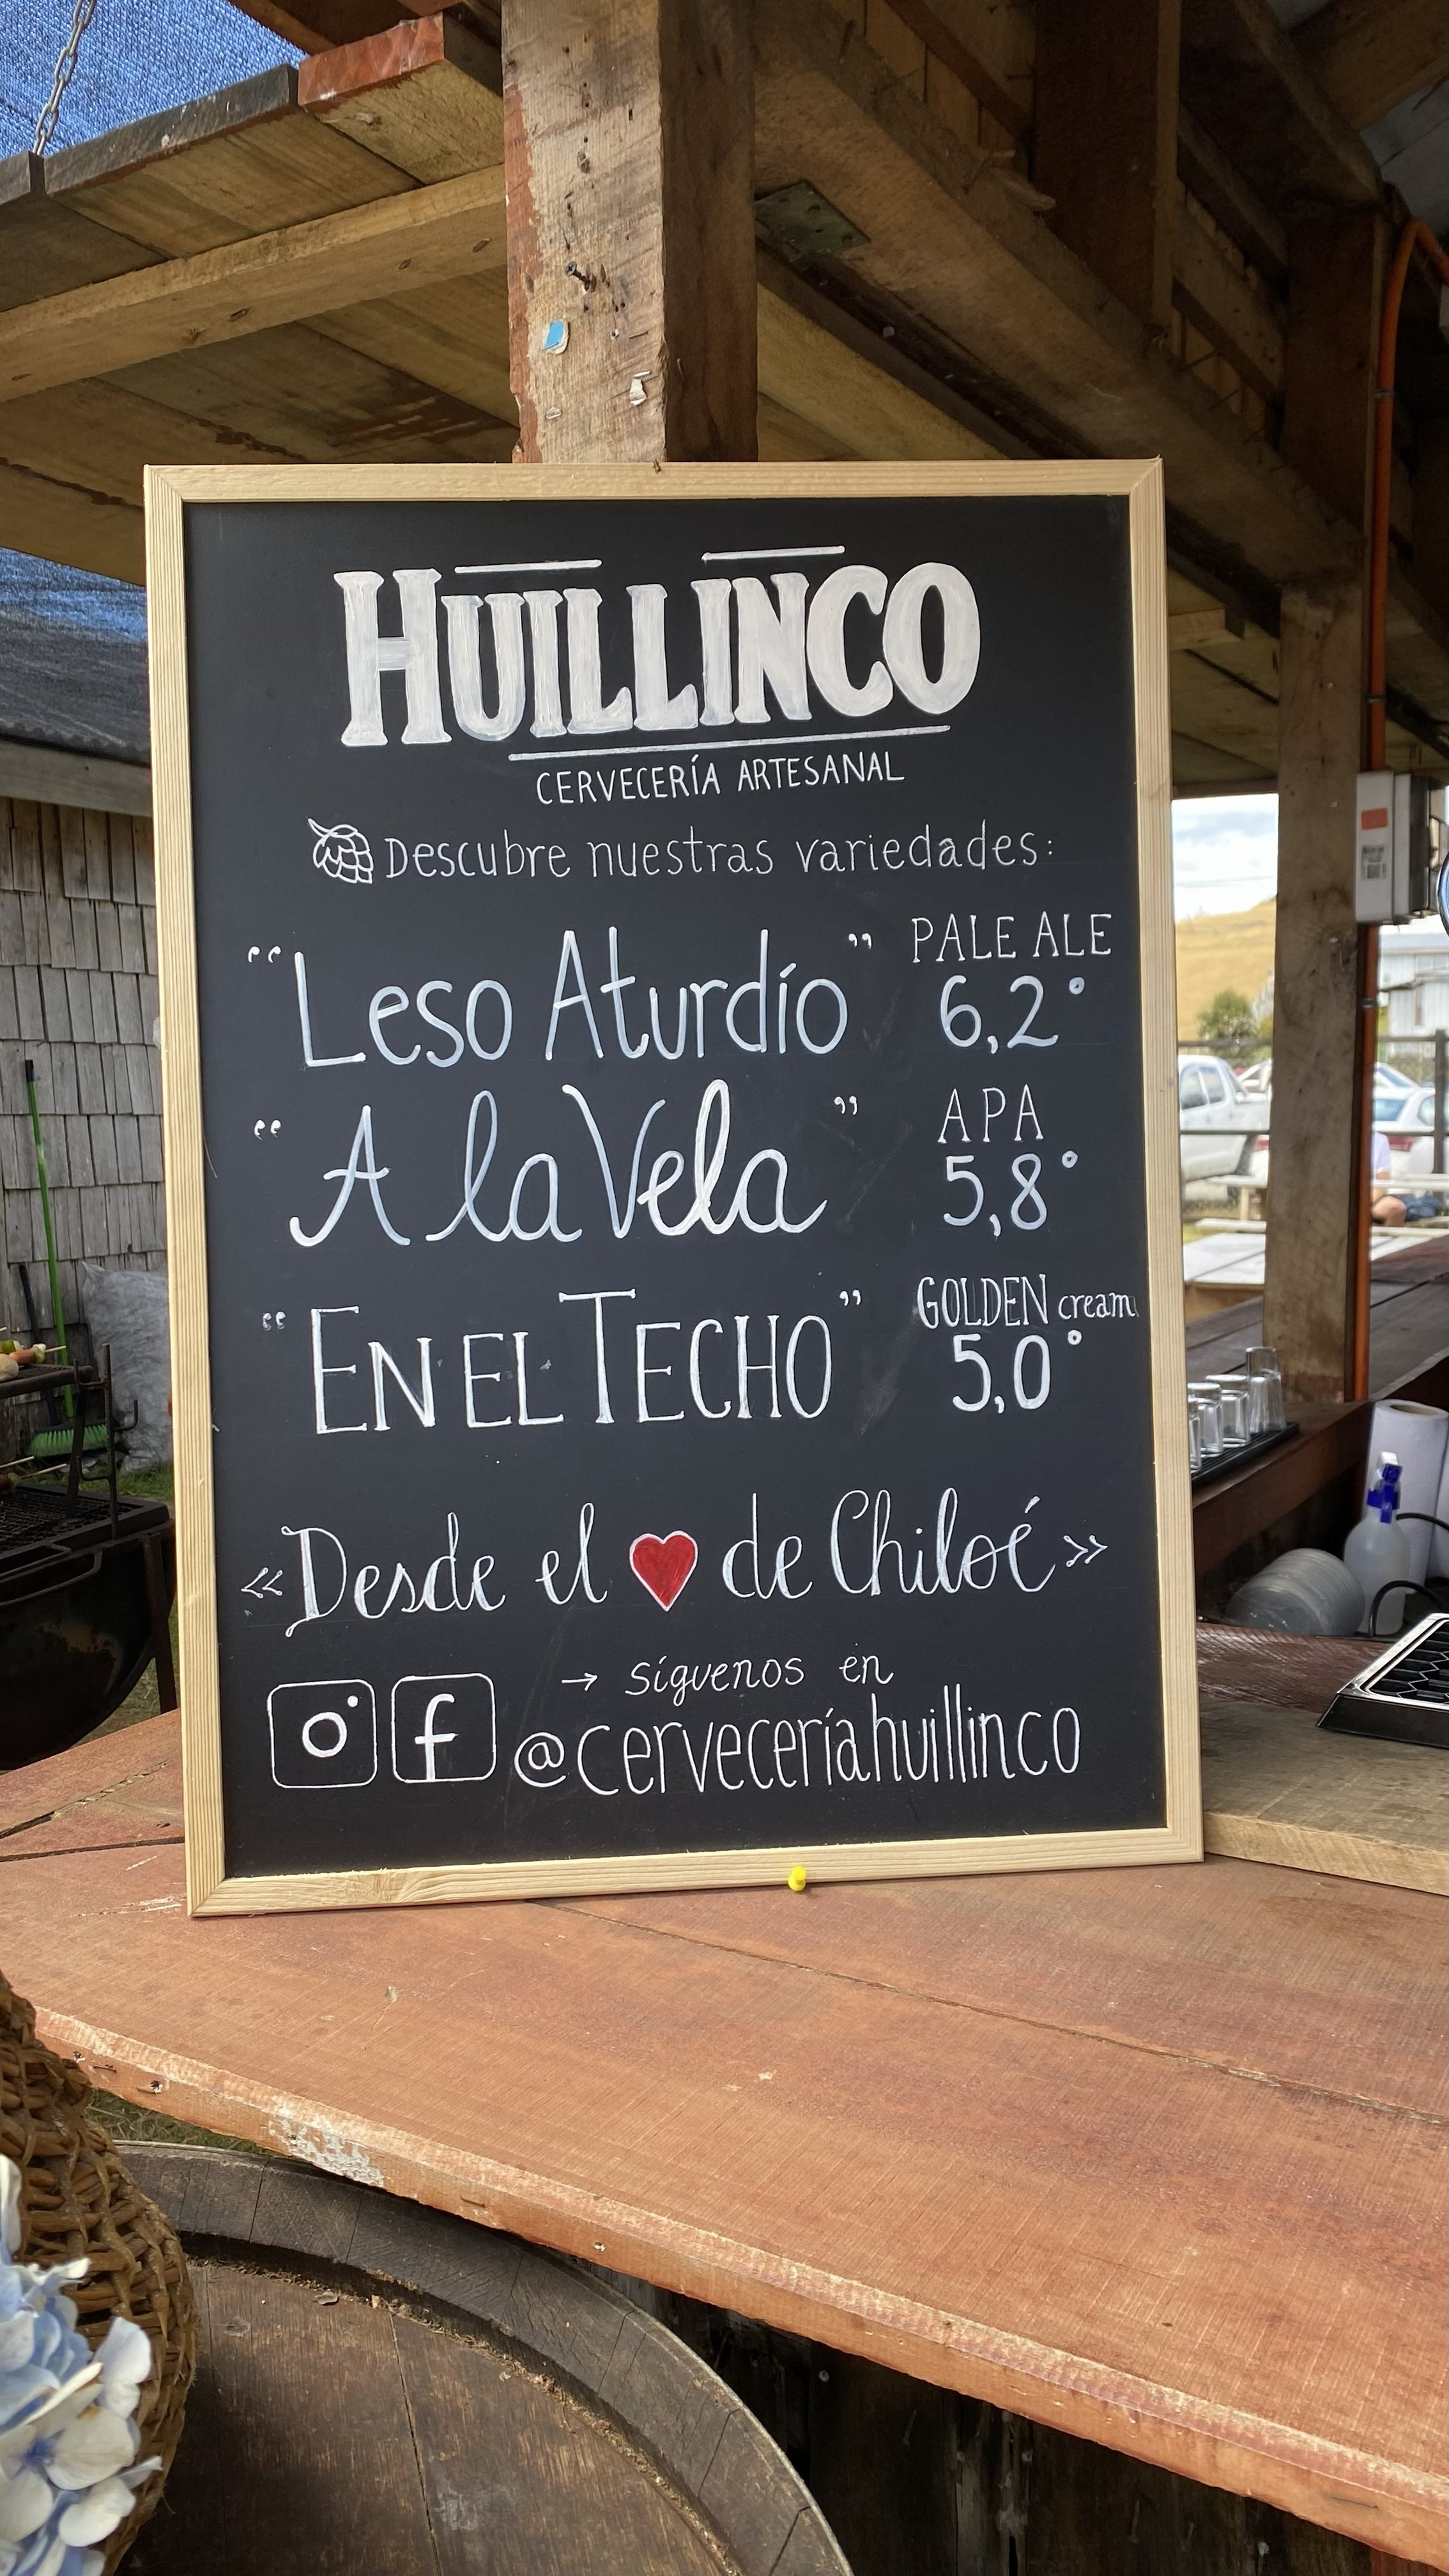 HUILLINCO
CERVECERÍA ARTESANAL
Descubre nuestras variedades:
“Leso Aturdío” PALE ALE
6,2°
“A la Vela” APA
5,8°
“EN EL TECHO” GOLDEN cream
5,0°
«Desde el ♥ de Chiloé»
→ síguenos en
@cerveceríahuillinco